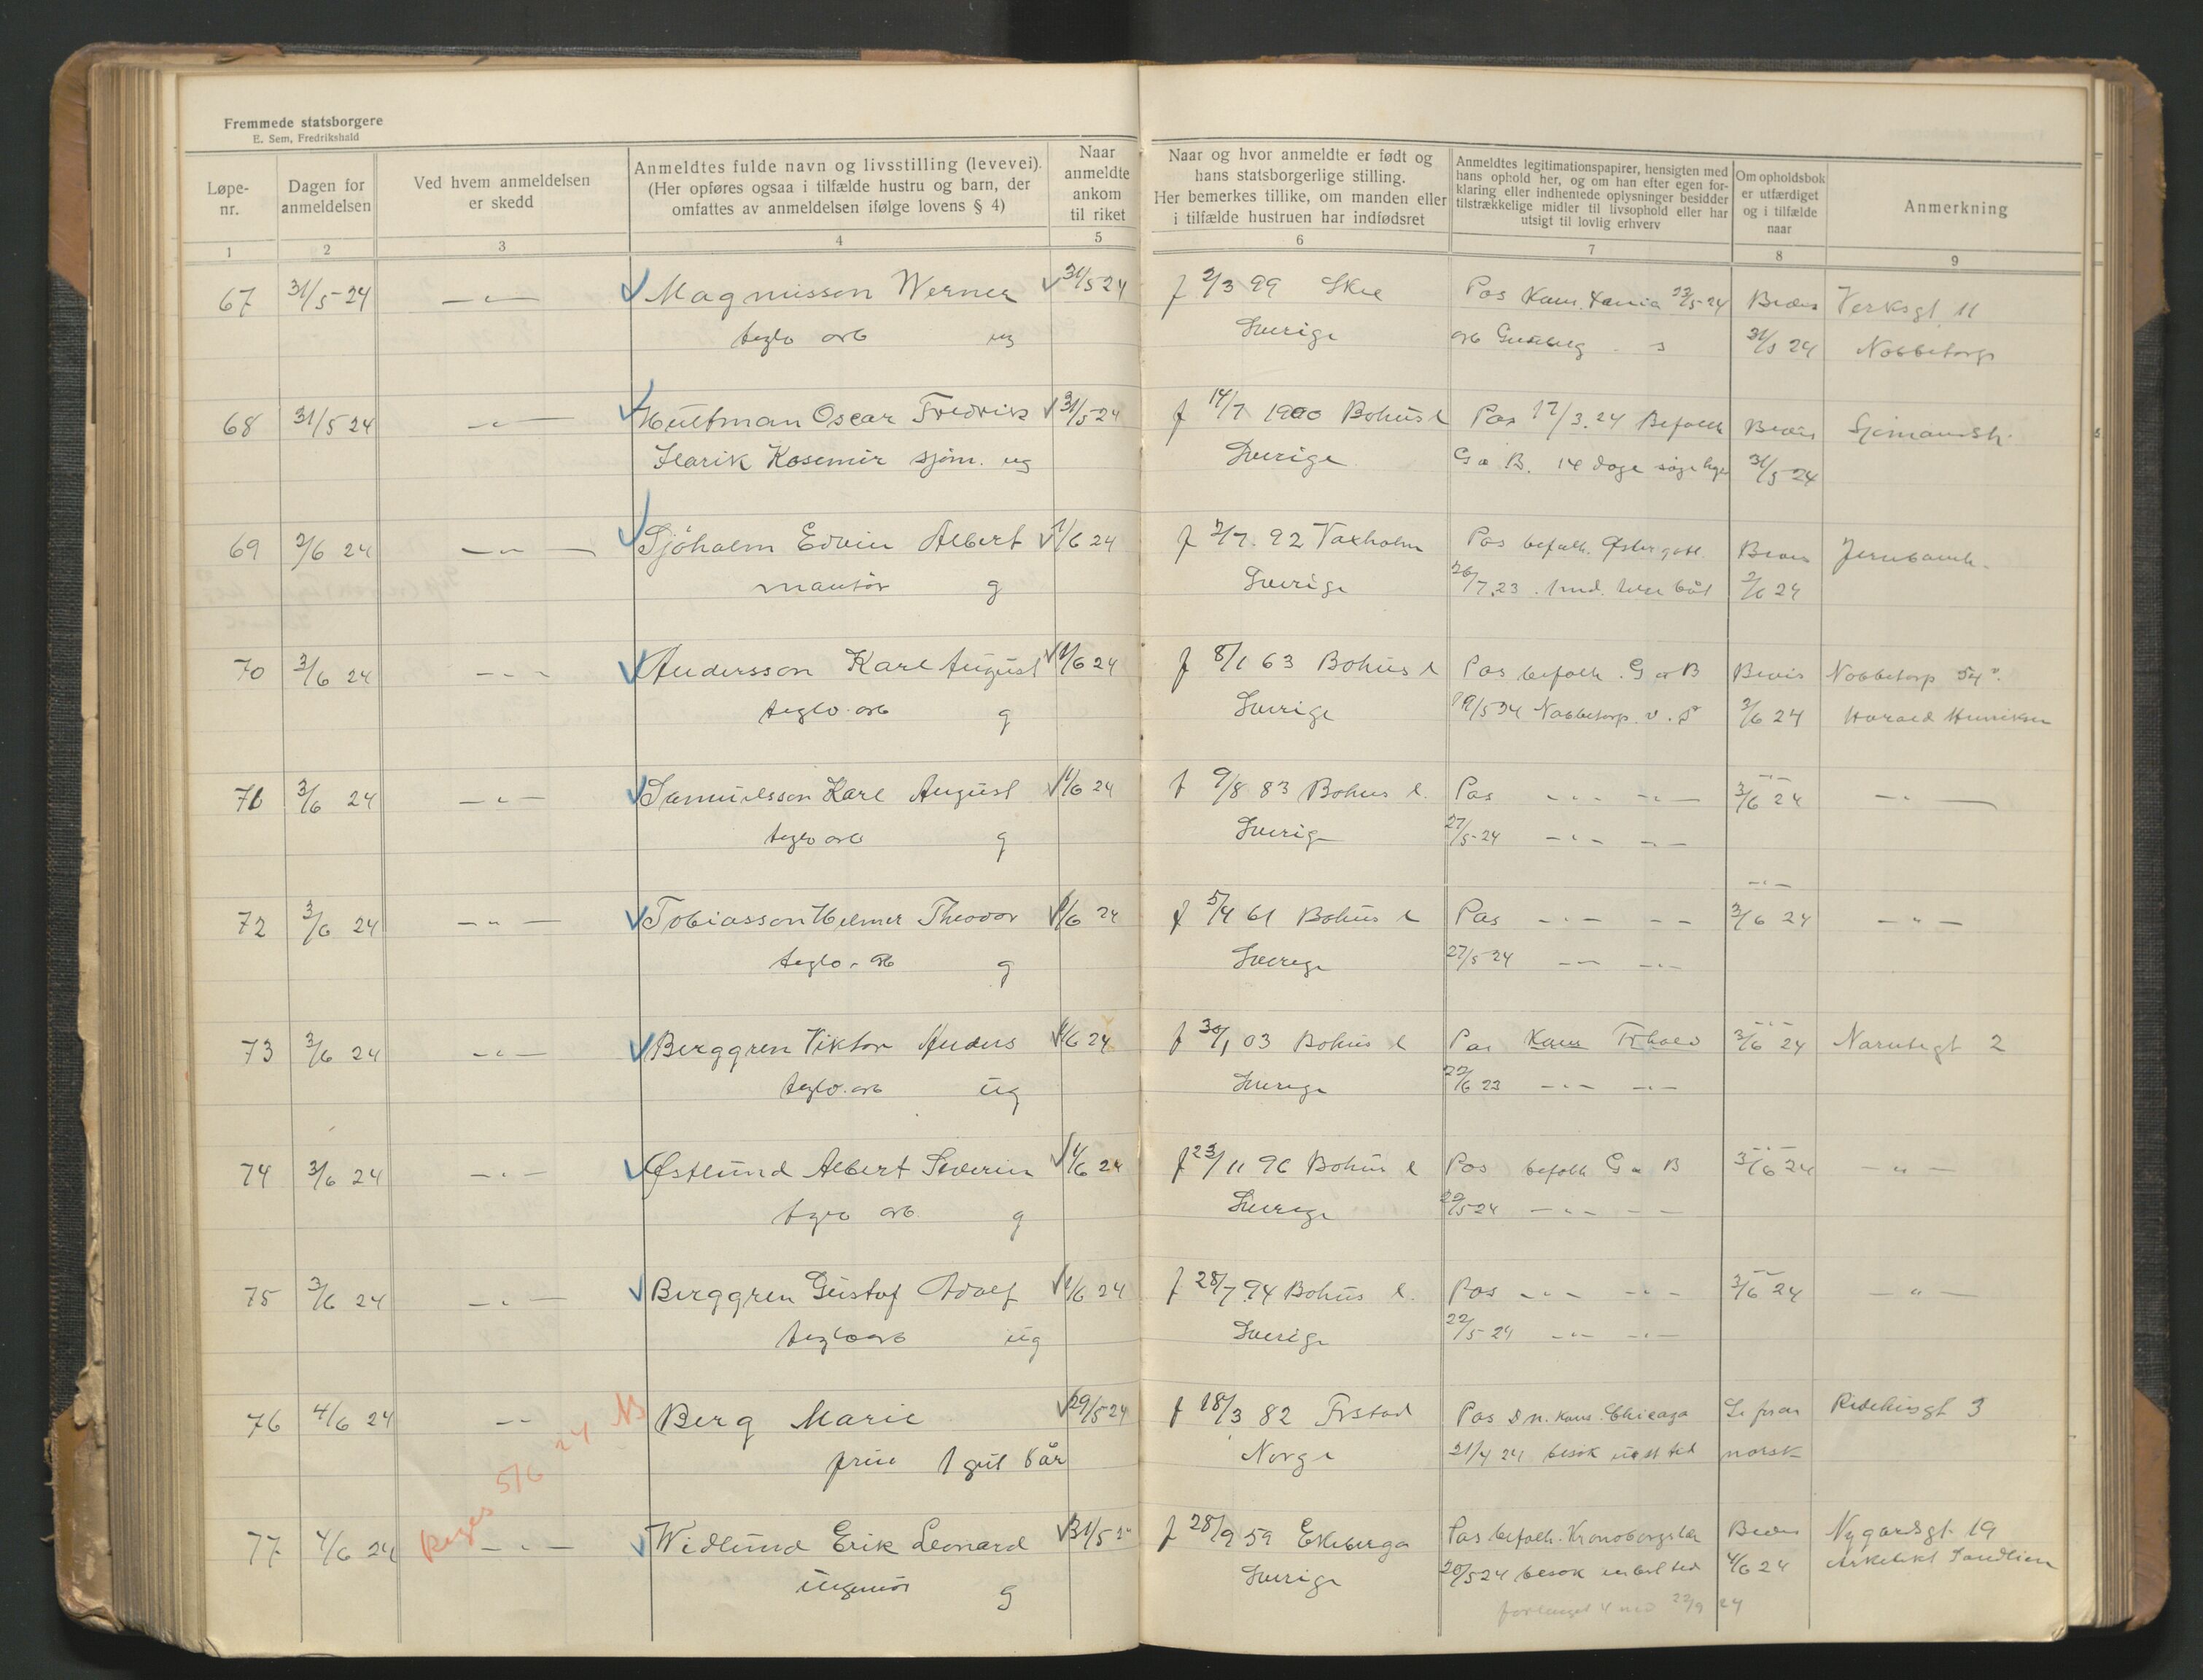 Fremmede statsborgere
E. Sem, Fredrikshald
Løpe-nr.
Dagen for anmeldelsen
Ved hvem anmeldelsen er skedd
Anmeldtes fulde navn og livsstilling (levevei).
(Her opføres ogsaa i tilfælde hustru og barn, der
omfattes av anmeldelsen ifølge lovens § 4)
Naar anmeldte ankom til riket
Naar og hvor anmeldte er født og
hans statsborgerlige stilling.
Her bemerkes tillike, om manden eller
i tilfælde hustruen har indfødsret
Anmeldtes legitimationspapirer, hensigten med
hans ophold her, og om han efter egen for-
klaring eller indhentede oplysninger besidder
tilstrækkelige midler til livsophold eller har
utsigt til lovlig erhverv
Om opholdsbok
er utfærdiget
og i tilfælde
naar
Anmerkning
1 2 3 4 5 6 7 8 9
67 31/5-24 —〃— Magnusson Werner 31/5 24 f 2/3 99 Skee Pas 23/5-24 Bevis Verksgt 11
teglv arb ug Sverige arb 31/5 24 Nabbetorp
68 31/5 24 —〃— Hultman Oscar Fredrik 31/5-24 f 14/7 1900 Bohusl Pas 17/3.24 Befolk Bevis Sjømannsh.
Henrik Kasemir sjøm. ug Sverige G o B. 14 dage søge hyre 31/5-24
69 2/6 24 —〃— Sjöholm Edvin Albert 1/6 24 f 2/7. 92 Vaxholm Pas befolk. Østergøtl. Bevis Jernbaneh.
montør g Sverige 26/7.23. 1 md. 2/6 24
70 3/6 24 —〃— Andersson Karl August 1/6 24 f 8/1 63 Bohusl Pas befolk. G o B Bevis Nabbetorp 54
teglv. arb g Sverige Nabbetorp 3/6 24 Harald Henriksen
71 3/6 24 —〃— Samuelsson Karl August 1/6 24 f 9/8 83 Bohus l. Pas —〃— —〃— 3/6 24 —〃—
teglv arb g Sverige 27/5-24 —〃— —〃—
72 3/6 24 —〃— Tobiasson Helmer Theodor 1/6 24 f 5/4 61 Bohus l Pas —〃— —〃— 3/6 24 —〃—
teglv. arb g Sverige 27/5 24 —〃— —〃—
73 3/6 24 —〃— Berggren Viktor Anders 1/6 24 f 30/1 03 Bohus l Pas Kons Frhald 3/6 24 2
teglv. arb ug Sverige 22/6 23 —〃— —〃—
74 3/6 24 —〃— Østlund Albert Severin 1/6 24 f 23/11 96 Bohus l Pas befolk G o B 3/6 24 —〃—
arb g Sverige 29/5-24 —〃— —〃—
75 3/6 24 —〃— Berggren Gustaf Adolf 1/6 24 f 28/7 94 Bohus l. Pas —〃— —〃— 3/6 24 —〃—
teglv arb ug Sverige 22/5-24 —〃— —〃—
76 4/6 24 —〃— NB Berg Marie 29/5-24 f 18/3 82 Frstad Pas Kons. Chicago 3
5/6 24 frue 1 gut 6 år Norge 21/4 24 besøk norsk
77 4/6 24 —〃— Widlund Erik Leonard 31/5 f 28/9 59 Ekeberga Pas befolk. Kronobergs län Bevis Nygardsgt. 19
ingeniør g Sverige 20/5 24 besøk 4/6 24 Arkitekt
forlenget 4 md 22/9 24